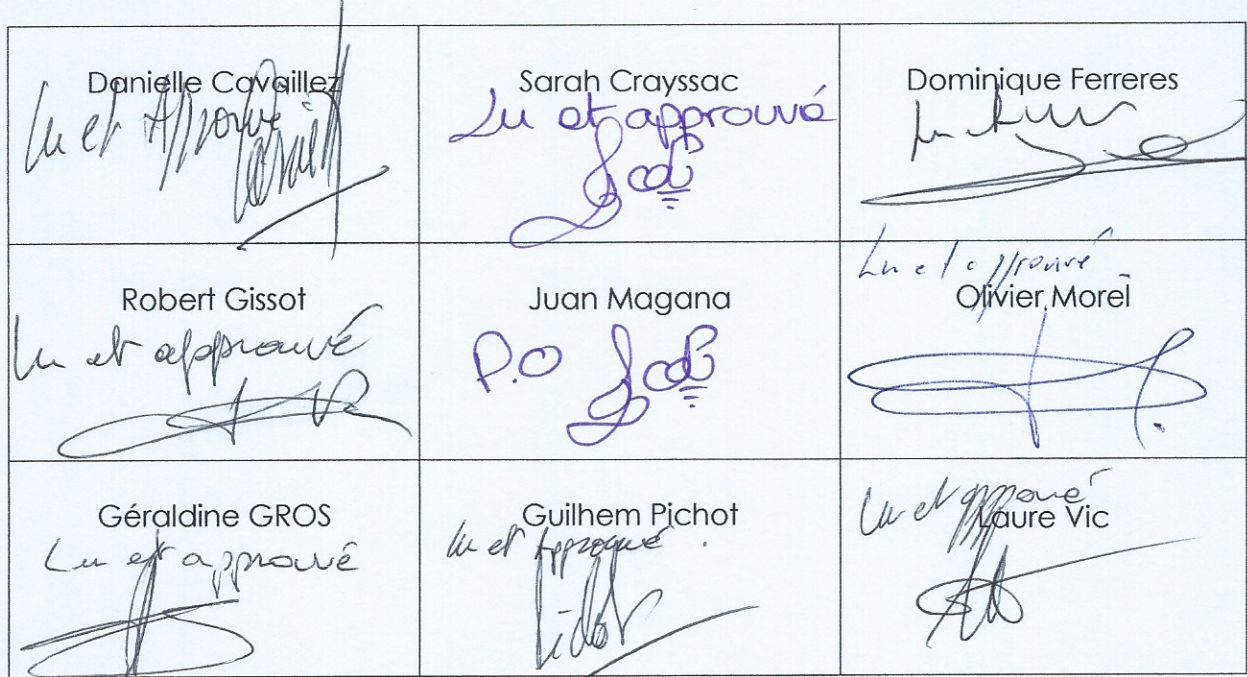 Danielle Cavaillez
Lu et Approuvé
Sarah Crayssac
Lu et approuvé
Dominique Ferreres
Robert Gissot
Lu et approuvé
Juan Magana
P.O
Lu et approuvé
Olivier Morel
Géraldine GROS
Lu et approuvé
Guilhem Pichot
Lu et Approuvé.
Lu et approuvé
Laure Vic